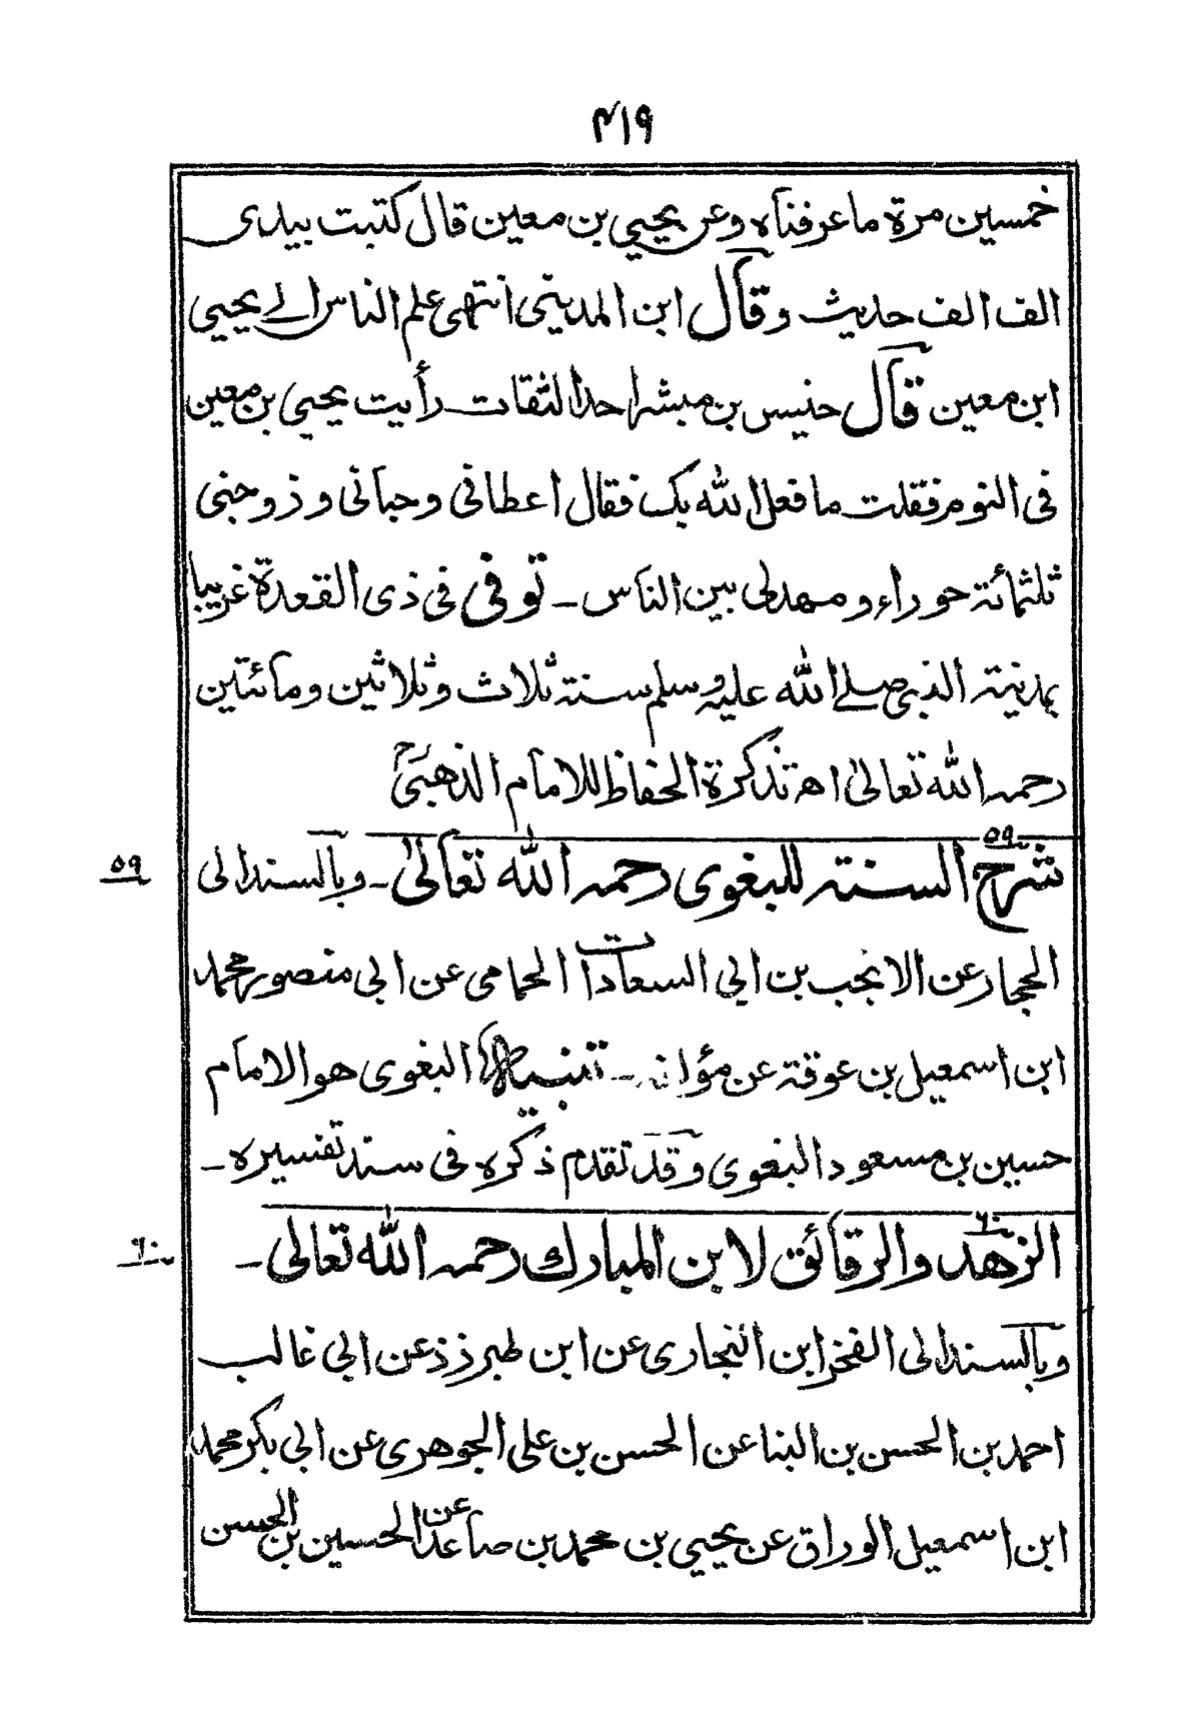 ۴۱۹
خمسين مرة ما عرفناه وعن يحيي بن معين قال كتبت بيدى
الف الف حديث وقال ابن المديني انتهى علم الناس الے يحيي
ابن معين قال حنيس بن مبشر احد الثقات رأيت يحيي بن معين
فى النوم فقلت ما فعل الله بك فقال اعطانى وحبانى وزوجنى
ثلثمائة حوراء ومهد لى بين الناس ـ توفى فى ذى القعدة غريبا
بمدينة النبى صلے الله عليه وسلم سنة ثلاث وثلاثين ومائتين
رحمه الله تعالىٰ اھ تذكرة الحفاظ للامام الذهبىؒ
۵۹
شرح السنة للبغوى رحمه الله تعالىٰ ـ وبالسند الى
۵۹
الحجار عن الانجب بن ابي السعادات الحمامى عن ابي منصور محمد
ابن اسمعيل بن عوقة عن مؤلفه ـ تنبيه البغوى هو الامام
حسين بن مسعود البغوى وقد تقدم ذكره فى سند تفسيره ـ
۶۰
الزهد والرقائق لابن المبارك رحمه الله تعالى ـ
۶۰
وبالسند الى الفخر ابن النجارى عن ابن طبرزذ عن ابي غالب
احمد بن الحسن بن البنا عن الحسن بن على الجوهرى عن ابي بكر محمد
ابن اسمعيل الوراق عن يحيي بن محمد بن صاعد عن الحسين بن الحسن